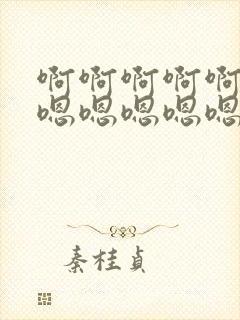 啊啊啊啊啊
嗯嗯嗯嗯嗯
秦桂贞